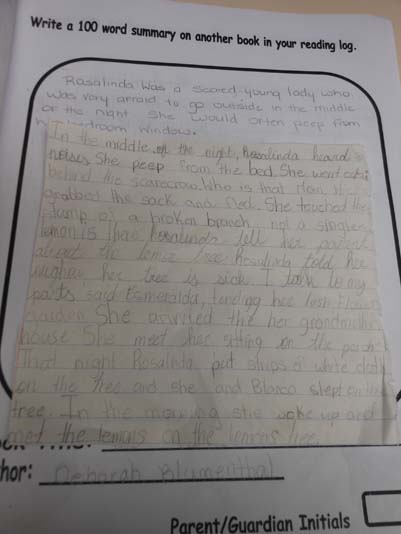 Write a 100 word summary on another book in your reading log.
Rosalinda was a scared young lady who
was vary afraid to go outside in the middle
or the night she would often peep from
bedroom window.
In the middle of the night, Rosalinda heard
noises She peep from the bed. She went
behind the scarecrow. Who is that Man
grabbed the sack and fled. She touched the
stump of a broken branch not a single
lemon is there Rosalinda tell her
about the tree Rosalinda told her
her tree is sick I talk to my
said Esmeralda, tending her lush flower
garden She the her grandmother
house She meet her sitting on the porch
That night Rosalinda put strips of white cloth
on the tree and she and Blanco slept
tree. In the morning she woke up and
the lemons on the lemons tree.
hor: Deborah Blumenthal
Parent/Guardian Initials